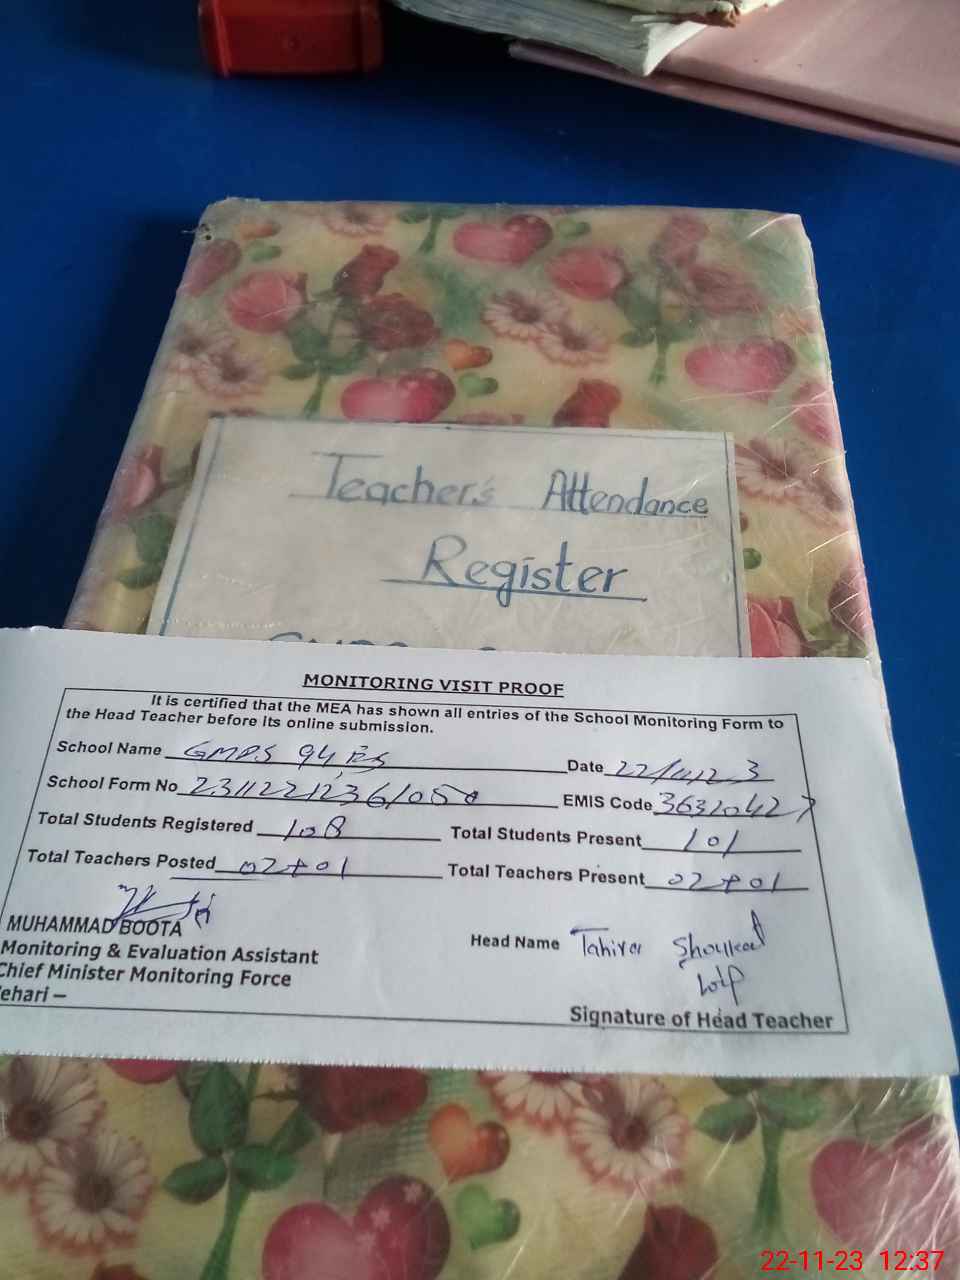 Teacher's Attendance
Register
MONITORING VISIT PROOF
It is certified that the MEA has shown all entries of the School Monitoring Form to
the Head Teacher before its online submission.
School Name GMPS 94 EB Date 22/11/23
School Form No EMIS Code 36320427
Total Students Registered 108 Total Students Present 101
Total Teachers Posted 02+01 Total Teachers Present 02+01
MUHAMMAD BOOTA Head Name Tahira
Monitoring & Evaluation Assistant
Chief Minister Monitoring Force
ehari – Signature of Head Teacher
22-11-23 12:37